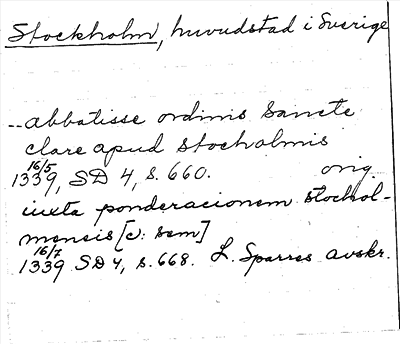 Stockholm, huvudstad i Sverige
--abbatisse ordinis sancte
clare apud stocholmis
16/5
1339, SD 4, s. 660. orig.
iuxta ponderacionem stochol-
mensis [c: sem]
16/7
1339 SD 4, s. 668. L. Sparres avskr.